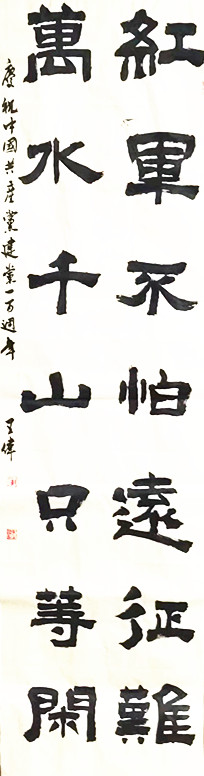 紅軍不怕遠征難
萬水千山只等閑
慶祝中國共産黨建黨一百週年
王偉